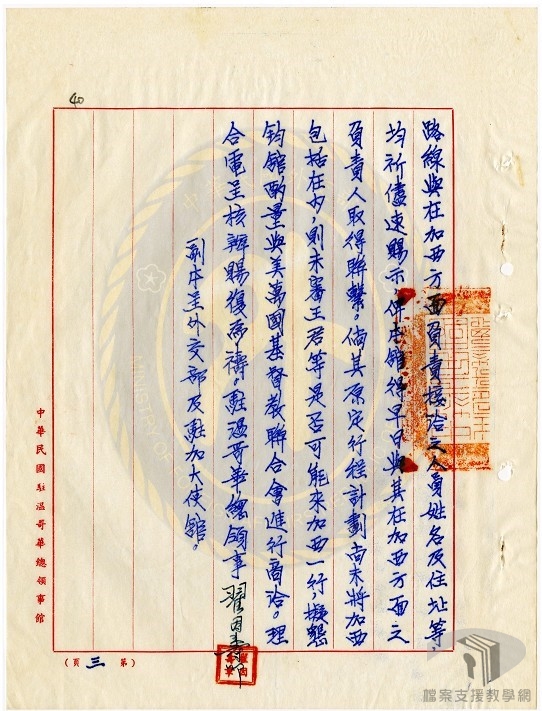 40
路線與在加西方面負責接洽之人員姓名及住址等,
均祈儘速賜示,俾本館得早日與其在加西方面之
負責人取得聯繫。倘其原定行程計劃尚未將加西
包括在內,則未審王君等是否可能來加西一行,擬懇
鈞館酌量與美萬國基督教聯合會進行商洽。理
合電呈核辦賜復為禱。駐溫哥華總領事 翟因壽 叩
副本呈外交部及駐加大使館。
中華民國駐溫哥華總領事館
第三頁
檔案支援教學網